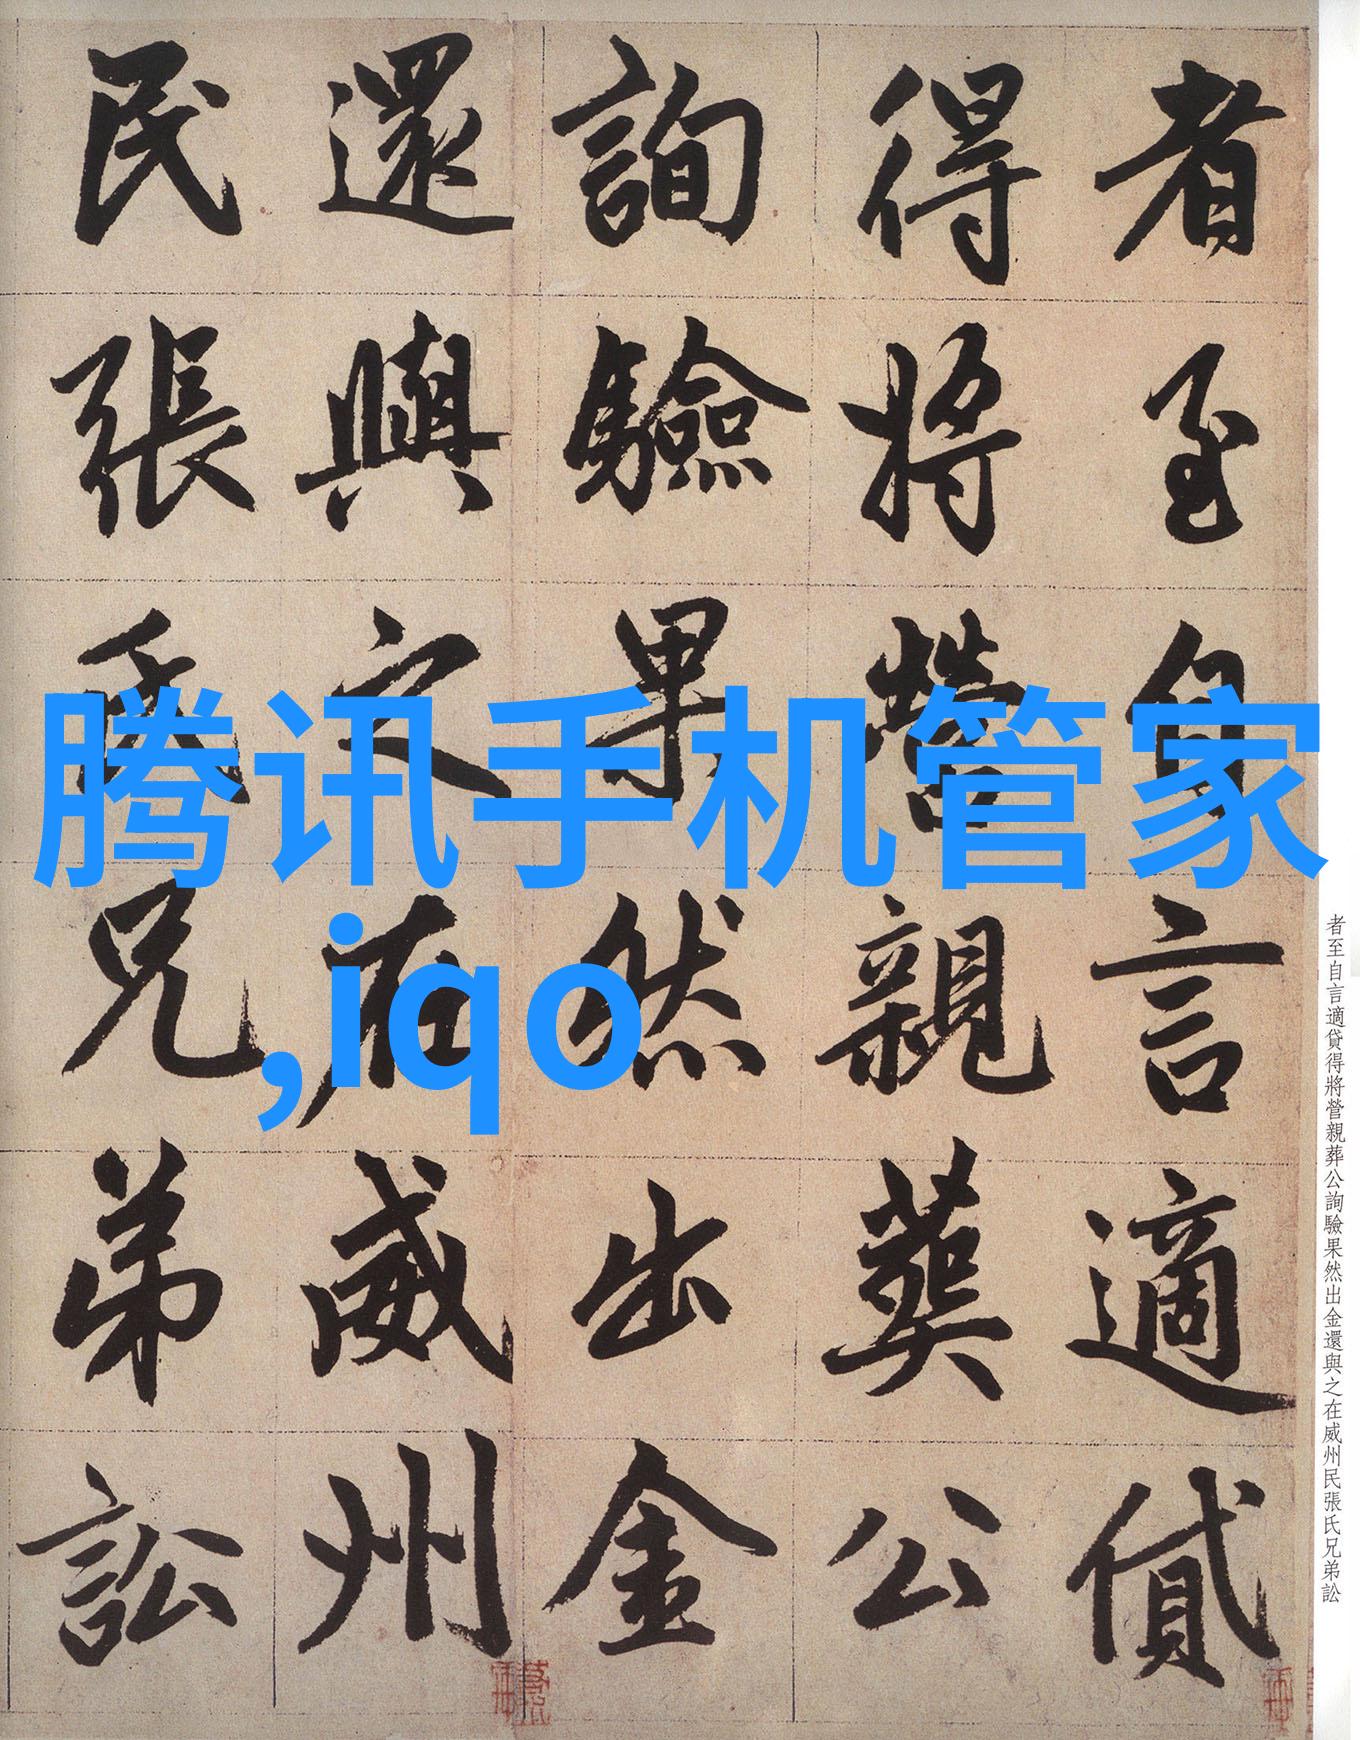 腾讯手机管家
,iqo
者至自言適貸
得將營親葬公
詢驗果然出金
還與之在威州
民張氏兄弟訟
者至自言適貸得將營親葬公詢驗果然出金還與之在威州民張氏兄弟訟